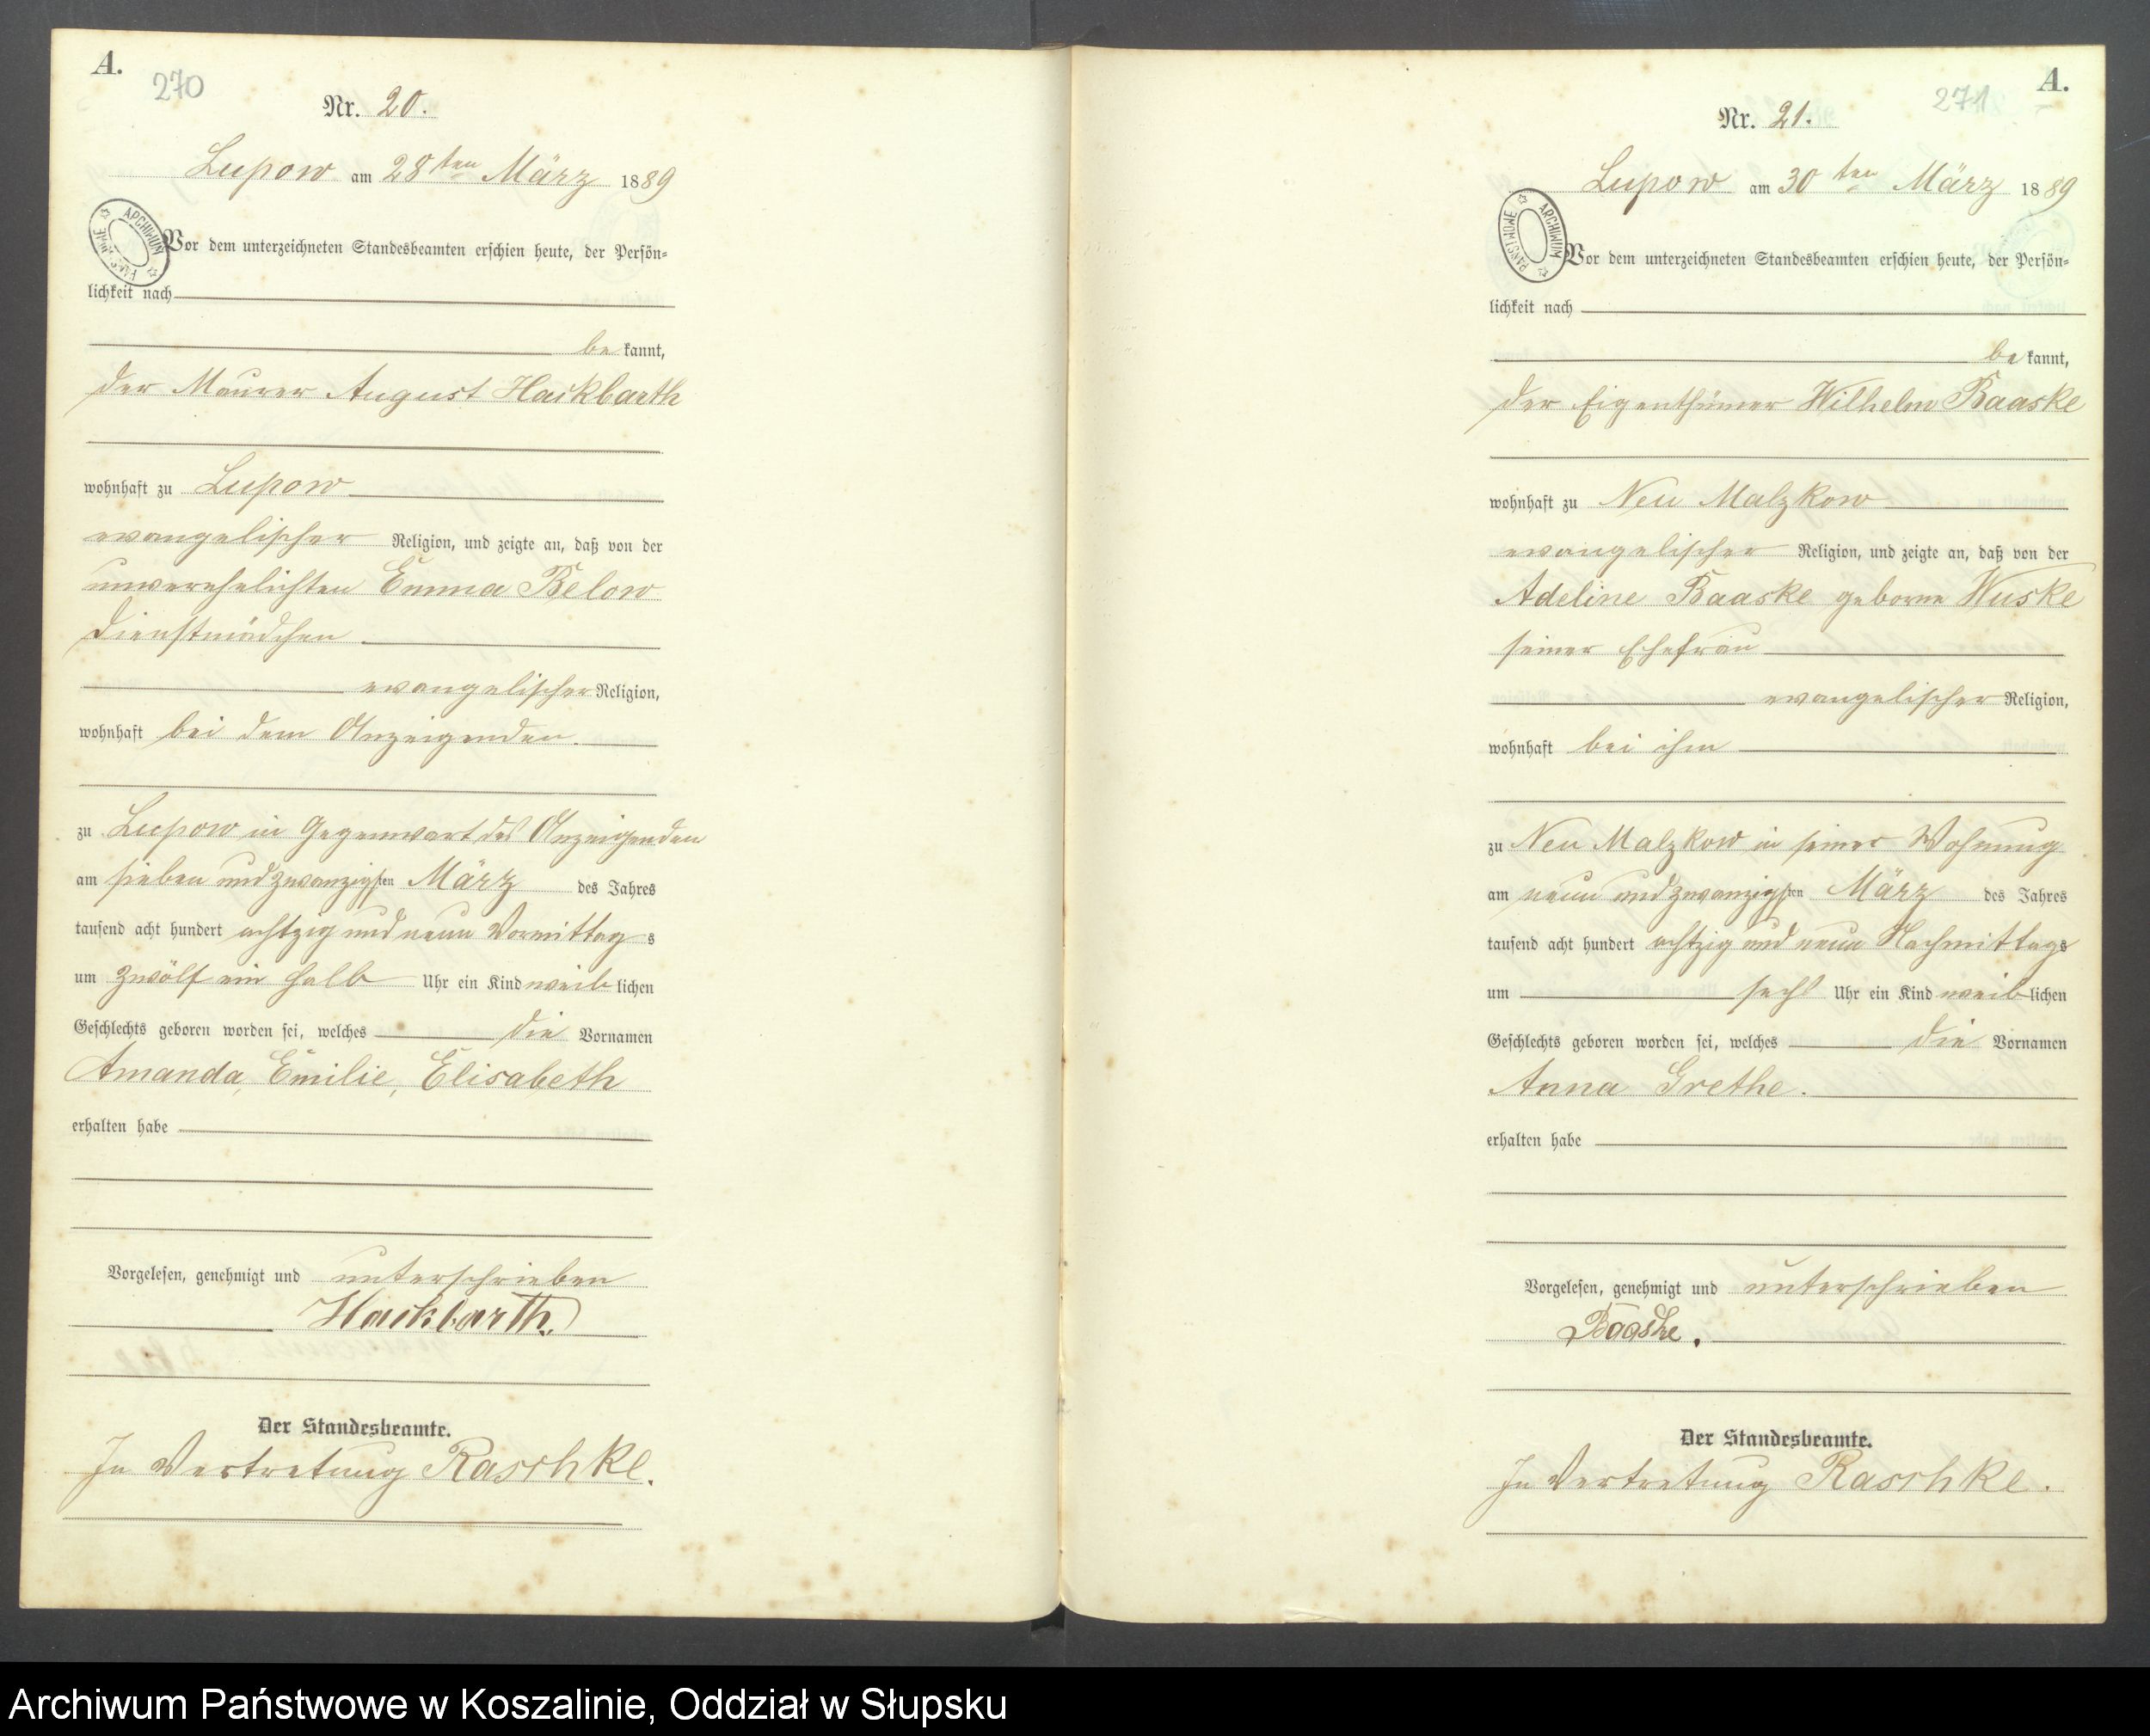 A.
270
Nr. 20.
Lupow am 28ten März 1889
ARCHIWUM PAŃSTWOWE
Vor dem unterzeichneten Standesbeamten erschien heute, der Persön-
lichkeit nach
be kannt,
der Maurer August Hackbarth
wohnhaft zu Lupow
evangelischer Religion, und zeigte an, daß von der
unverehelichten Emma Below
Dienstmädchen
evangelischer Religion,
wohnhaft bei dem Anzeigenden.
zu Lupow in Gegenwart des Anzeigenden
am sieben und zwanzigsten März des Jahres
tausend acht hundert achtzig und neun Vormittags
um zwölf ein halb Uhr ein Kind weib lichen
Geschlechts geboren worden sei, welches die Vornamen
Amanda, Emilie, Elisabeth
erhalten habe
Vorgelesen, genehmigt und unterschrieben
Hackbarth.
Der Standesbeamte.
In Vertretung Raschke.
A.
271
Nr. 21.
Lupow am 30ten März 1889
ARCHIWUM PAŃSTWOWE
Vor dem unterzeichneten Standesbeamten erschien heute, der Persön-
lichkeit nach
be kannt,
der Eigenthümer Wilhelm Baaske
wohnhaft zu Neu Malzkow
evangelischer Religion, und zeigte an, daß von der
Adeline Baaske geborne Wuske
seiner Ehefrau
evangelischer Religion,
wohnhaft bei ihm
zu Neu Malzkow in seiner Wohnung
am neun und zwanzigsten März des Jahres
tausend acht hundert achtzig und neun Nachmittags
um sechs Uhr ein Kind weib lichen
Geschlechts geboren worden sei, welches die Vornamen
Anna Grethe.
erhalten habe
Vorgelesen, genehmigt und unterschrieben
Baaske.
Der Standesbeamte.
In Vertretung Raschke.
Archiwum Państwowe w Koszalinie, Oddział w Słupsku